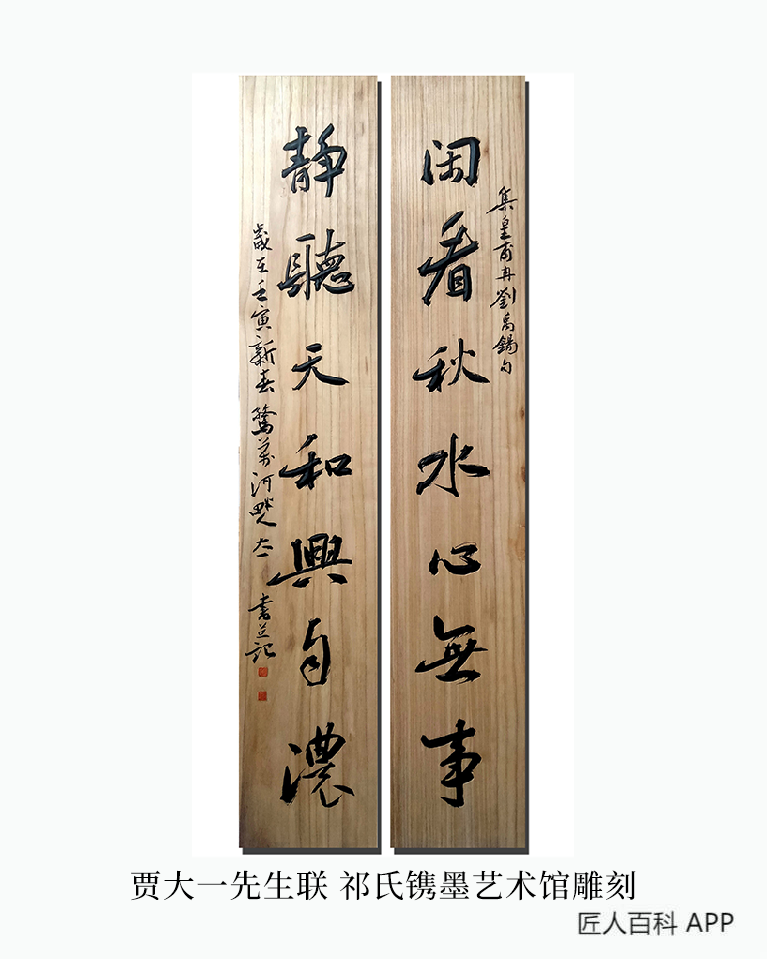 集皇甫冉劉禹錫句
閑看秋水心無事
靜聽天和興自濃
歲在壬寅新春
書並記
贾大一先生联 祁氏镌墨艺术馆雕刻
匠人百科 APP